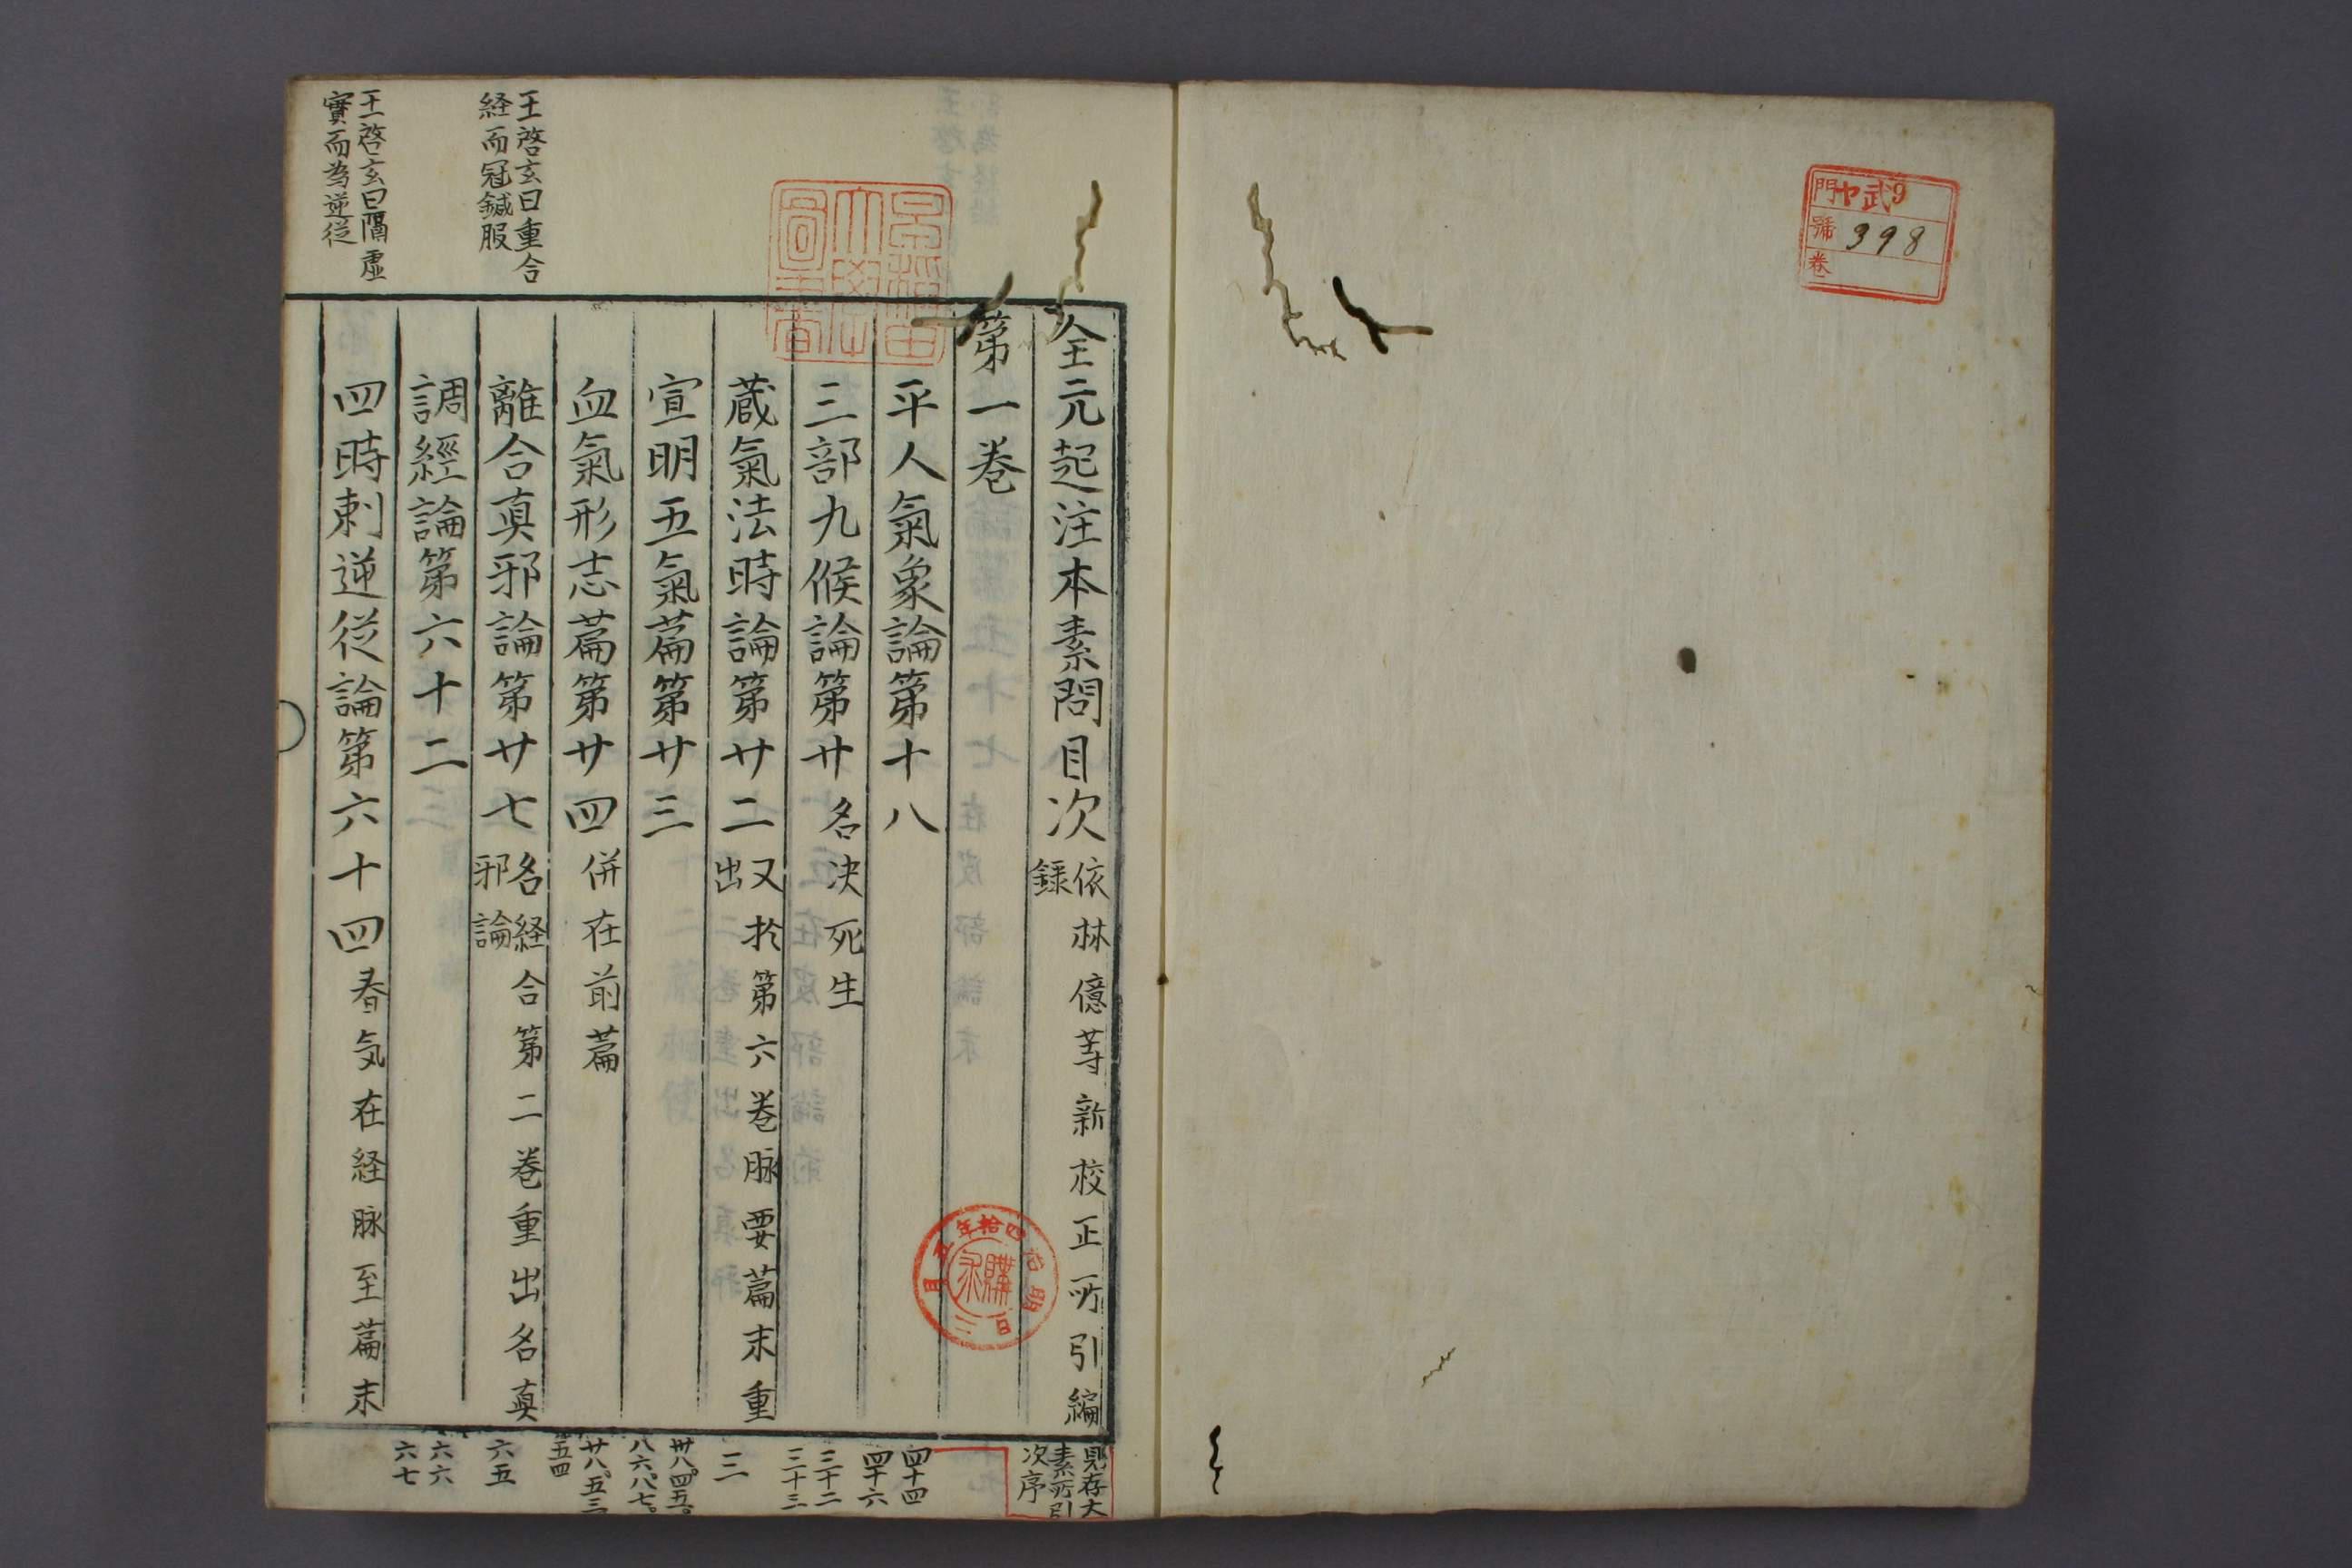 門ヤ武9
號 398
卷
早稲田
大學
圖書
全元起注本素問目次 依林億等新校正所引編
錄
第一卷
平人氣象論第十八
三部九候論第廿 名決死生
藏氣法時論第廿二 又於第六卷脉要篇末重
出
宣明五氣篇第廿三
血氣形志篇第廿四 併在前篇
離合真邪論第廿七 名経合第二卷重出名真
邪論
調經論第六十二
四時刺逆從論第六十四 春気在経脉至篇末
王啓玄曰重合
経而冠鍼服
王啓玄曰隔虛
實而為逆從
見存大
素所引
次序
四十四
四十六
三十二
三十三
二
卅八。四五。
八六八七。
廿八。五三
五四
六五
六六
六七
明治四拾年五月三日
購求